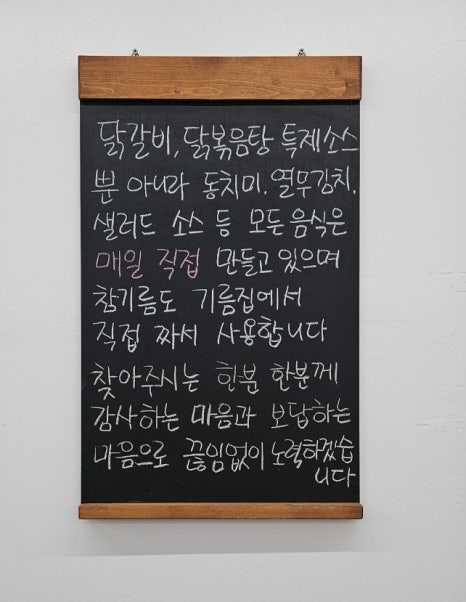 닭갈비, 닭볶음탕 특제소스
뿐 아니라 동치미, 열무김치,
샐러드 소스 등 모든 음식은
매일 직접 만들고 있으며
참기름도 기름집에서
직접 짜서 사용합니다
찾아주시는 한분 한분께
감사하는 마음과 보답하는
마음으로 끊임없이 노력하겠습
니다